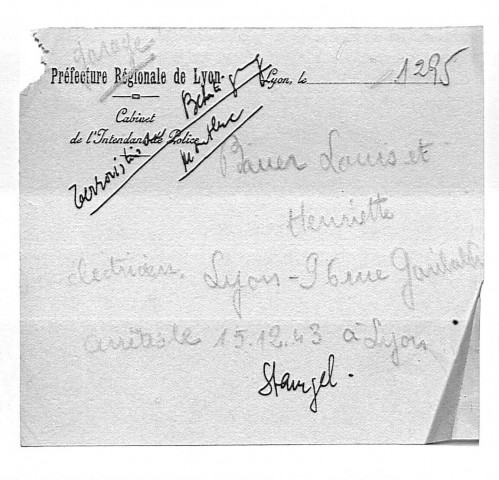 garage
Préfecture Régionale de Lyon
Lyon, le 1295
Cabinet
de l'Intendant de Police
Bauer Louis et
Henriette
électricien. Lyon - 96 rue Garibaldi
arrêtés le 15.12.43 à Lyon